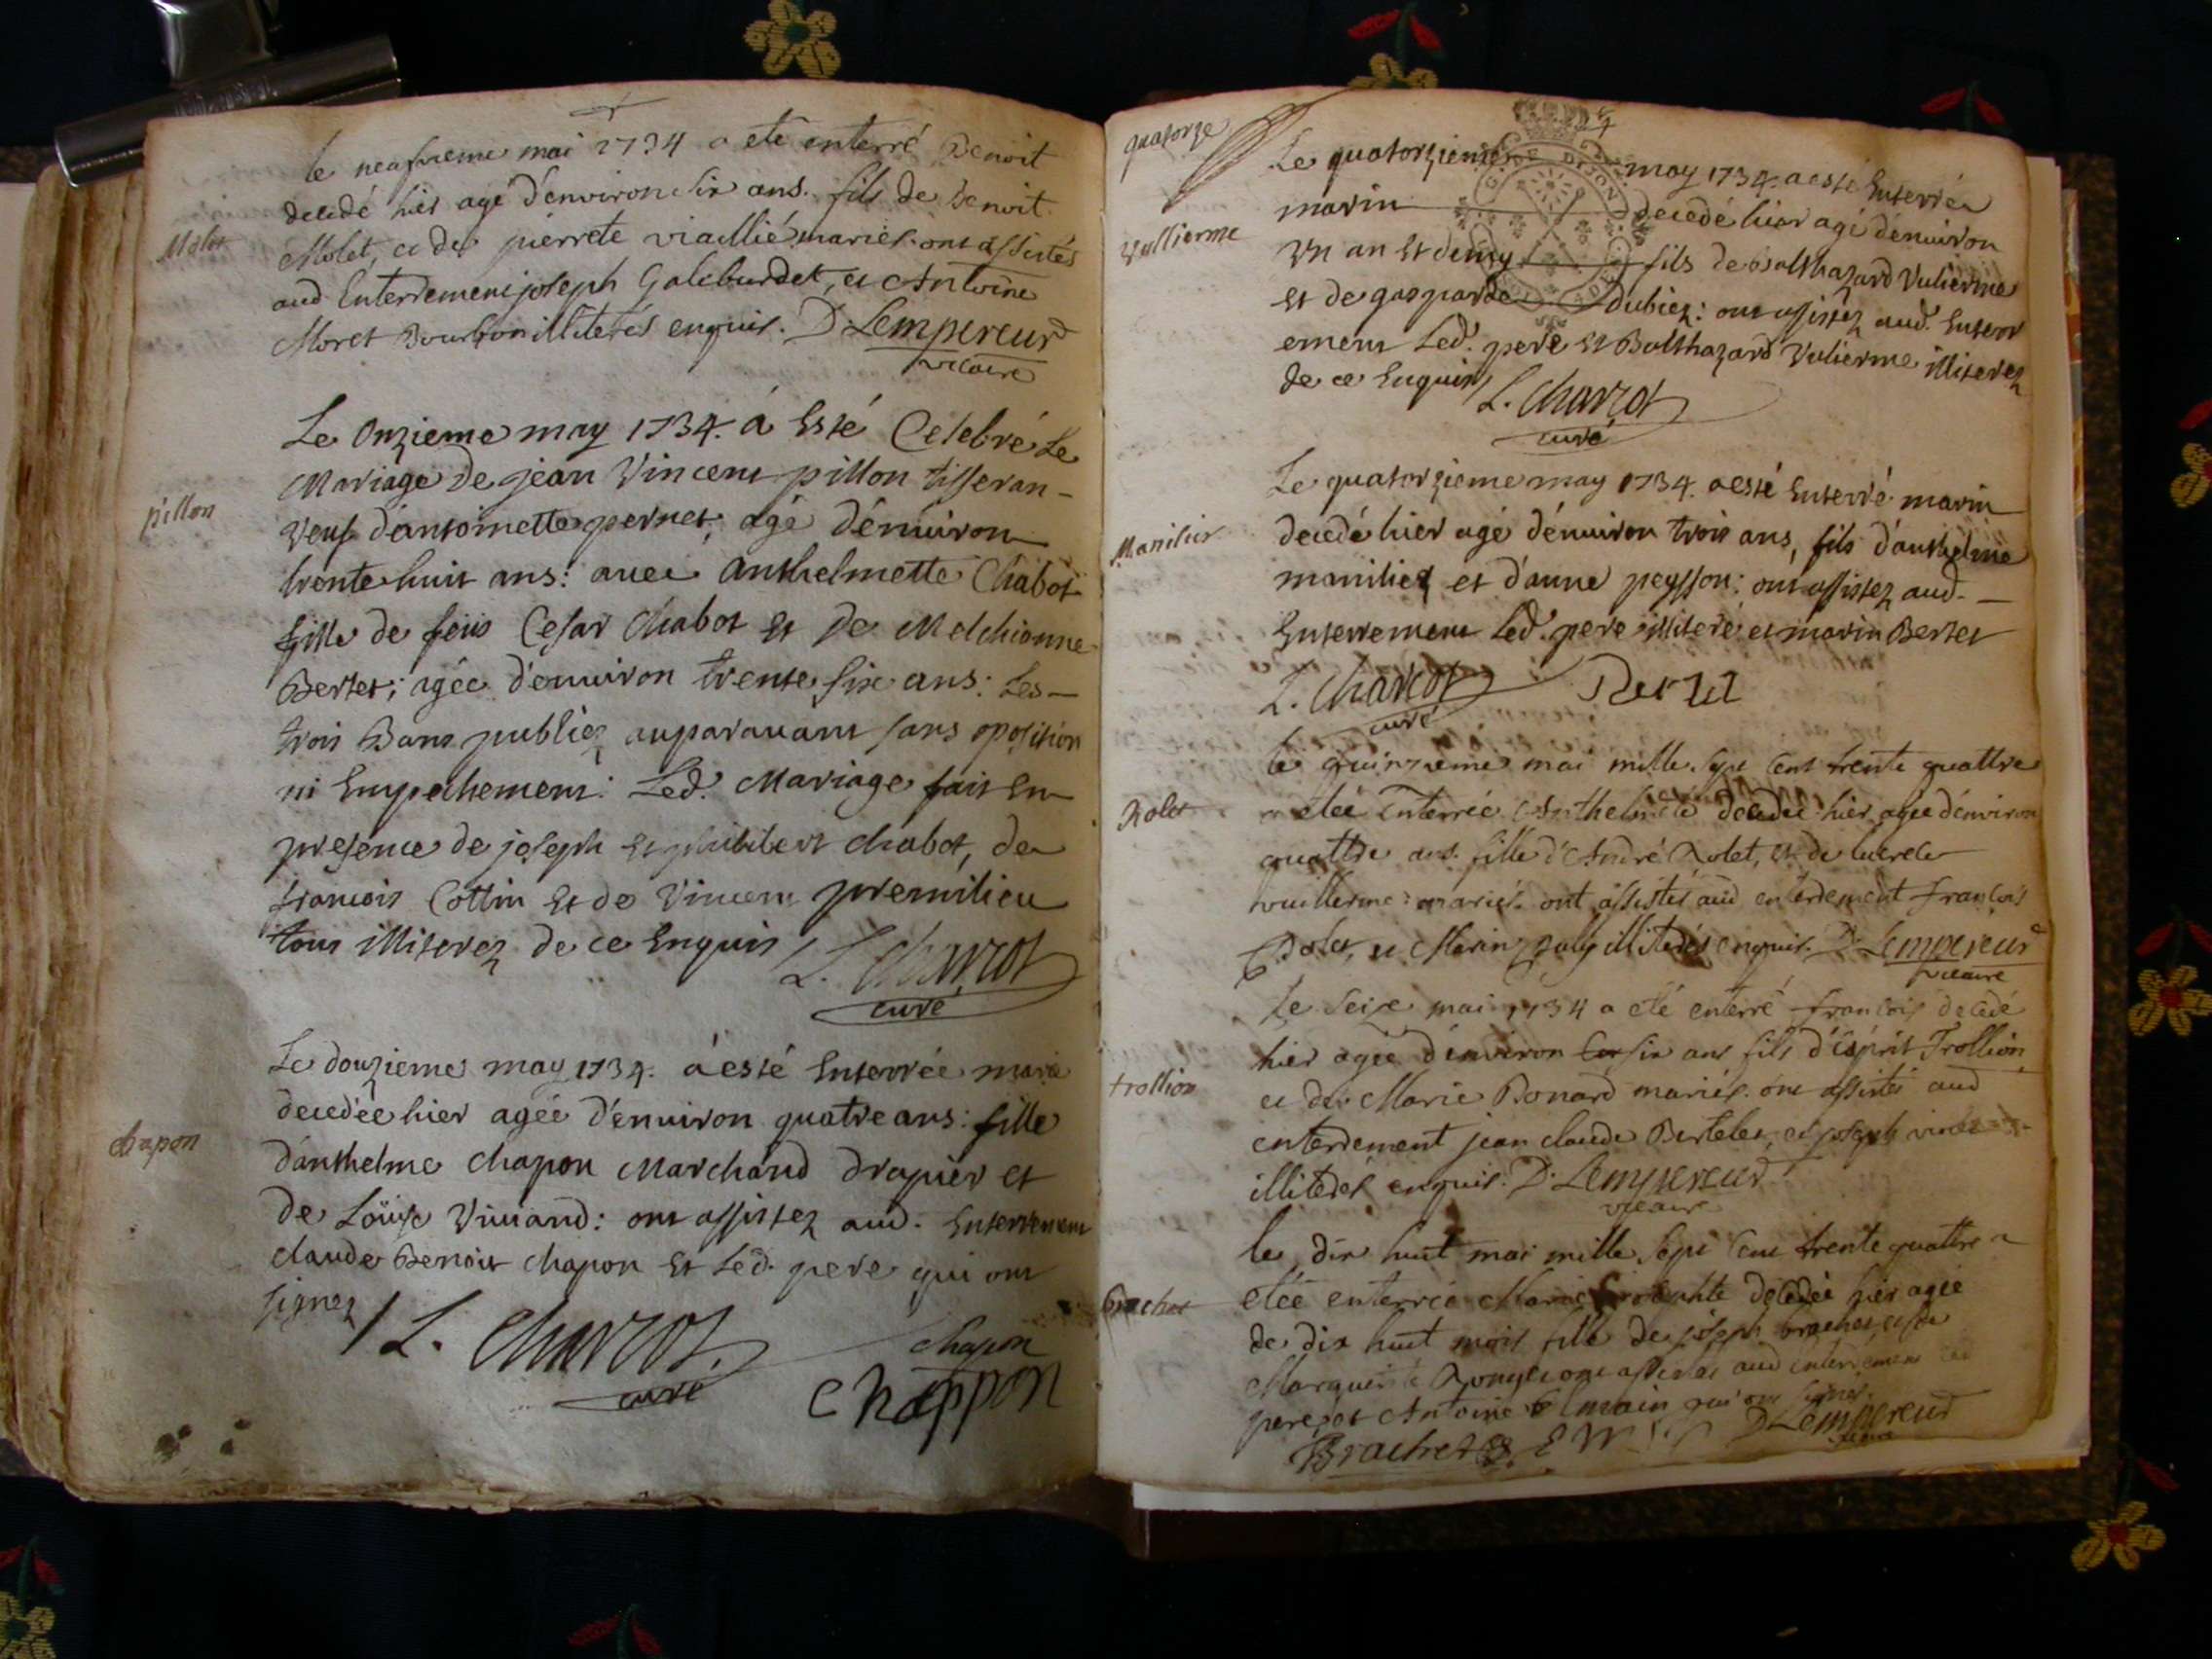 le neufvieme mai 1734 a eté enterré Benoit
decedé hier agé d'environ six ans. fils de Benoit
Molet
Molet, et de pierrete viallié mariés. ont assistés
aud Enterrement joseph Galeburdet, et Antoine
Moret Bourbon illiterés enquis. D. Lempereur
vicaire
Le Onzieme may 1734. á Esté Celebré Le
Mariage De jean Vincent pillon tisseran-
pillon
veuf d'antoinette pernet, agé d'énuiron
trente huit ans: auec anthelmette Chabot
fille de feüs Cesar Chabot Et De Melchionne
Bertet; agée d'enuiron trente six ans: Les-
trois Bans publiez auparauant sans oposition
ni Empechement: Led. Mariage fait En
presence de joseph Et philibert chabot, de
francois Cottin Et de Vincent premilieu
tous illiterez de ce Enquis L. Charcot
curé
Le douzieme may 1734. á esté Enterrée marie
decedée hier agée d'enuiron quatre ans: fille
chapon
d'anthelme chapon Marchand Drapier et
de Loüise Viuand: ont assistez aud. Enterrement
claude Benoit chapon Et Led. pere qui ont
signez L. Charcot
curé
chapon
chappon
quatorze
Le quatorzieme may 1734. a esté Enterrée
marin decedé hier agé d'énuiron
Vullierme
Vn an Et demy fils de balthazard Vulierme
Et de gasparde Dubiez: ont assistez aud. Enterr
ement Led. pere Et Balthazard Vulierme illiterez
de ce Enquis L. Charcot
curé
Le quatorzieme may 1734. a esté Enterré marin
Manilier
decedé hier agé d'énuiron trois ans, fils d'anthelme
manilier et d'anne peysson: ont assistez aud.-
Enterrement Led. pere illiteré et marin Bertet
L. Charcot Bertet
curé
le quinzieme mai mille sept cent trente quattre
Rolet
a etée enterrée Anthelmete decedée hier agée d'environ
quattre ans. fille d'André Rolet, et de lucrele
vuillerme mariés. ont assistés aud enterrement francois
Bolet, et Marin illiterés enquis. D. Lempereur
vicaire
Le seize mai 1734 a eté enterré francois decedé
hier agée d'environ six ans fils d'esprit Trollion
trollion
et de Marie Bonard mariés. ont assistés aud
enterrement jean claude Bertelet, et joseph
illiterés enquis. D. Lempereur
vicaire
le dix huit mai mille sept cent trente quattre a
Brachet
etée enterrée Marie decedée hier agée
de dix huit mois fille de joseph brachet, et de
Marguerite ont assistés aud enterrement
pere, et Antoine qui ont signés.
Brachet D Lempereur